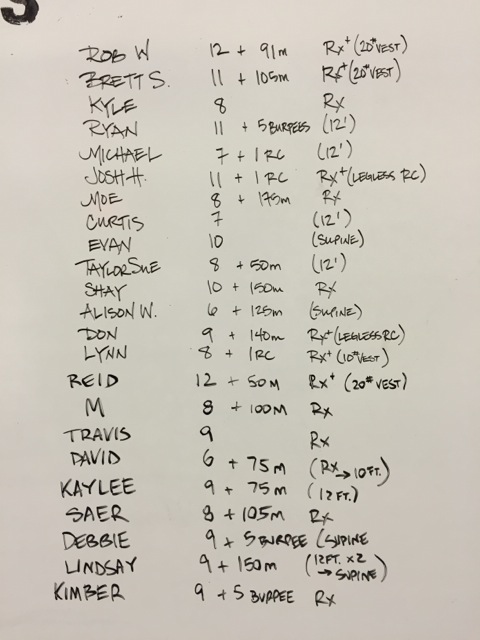 S
ROB W 12 + 91m Rx+ (20# VEST)
BRETT S. 11 + 105m Rx+ (20# VEST)
KYLE 8 Rx
RYAN 11 + 5 BURPEES (12')
MICHAEL 7 + 1 RC (12')
JOSH H. 11 + 1 RC Rx+ (LEGLESS RC)
MOE 8 + 175m Rx
CURTIS 7 (12')
EVAN 10 (SUPINE)
TAYLOR SUE 8 + 50m (12')
SHAY 10 + 150m Rx
ALISON W. 6 + 125m (SUPINE)
DON 9 + 140m Rx+ (LEGLESS RC)
LYNN 8 + 1RC Rx+ (10# VEST)
REID 12 + 50M Rx+ (20# VEST)
M 8 + 100M Rx
TRAVIS 9 Rx
DAVID 6 + 75m (Rx → 10FT.)
KAYLEE 9 + 75m (12FT.)
SAER 8 + 105m Rx
DEBBIE 9 + 5 BURPEE (SUPINE
LINDSAY 9 + 150m (12FT. x2
→ SUPINE)
KIMBER 9 + 5 BURPEE Rx